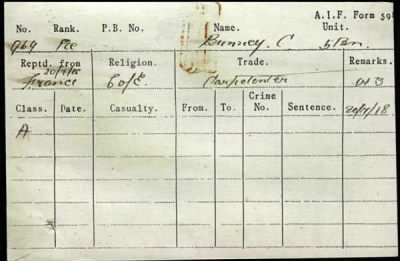 A.I.F. Form 59
No. Rank. P.B. No. Name. Unit.
969 Pte Bunney. C 5/Bn
Reptd. from Religion. Trade. Remarks.
France C of E. Carpetenter
Class. Date. Casualty. From. To. Crime No. Sentence. 20/4/18
A